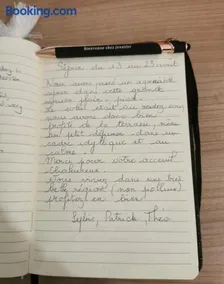 Booking.com
Bienvenue chez
Séjour du 13 au 23 août
Nous avons passé un agréable
séjour dans cette
pieds.
Le soleil était au rendez-vous
nous avons donc bien
profité de la terrasse,
un petit déjeuner dans un
cadre idyllique et au
calme.
Merci pour votre accueil
chaleureux.
Vous vivez dans une très
belle région (non polluée)
profitez en bien
Sylvie, Patrick, Théo